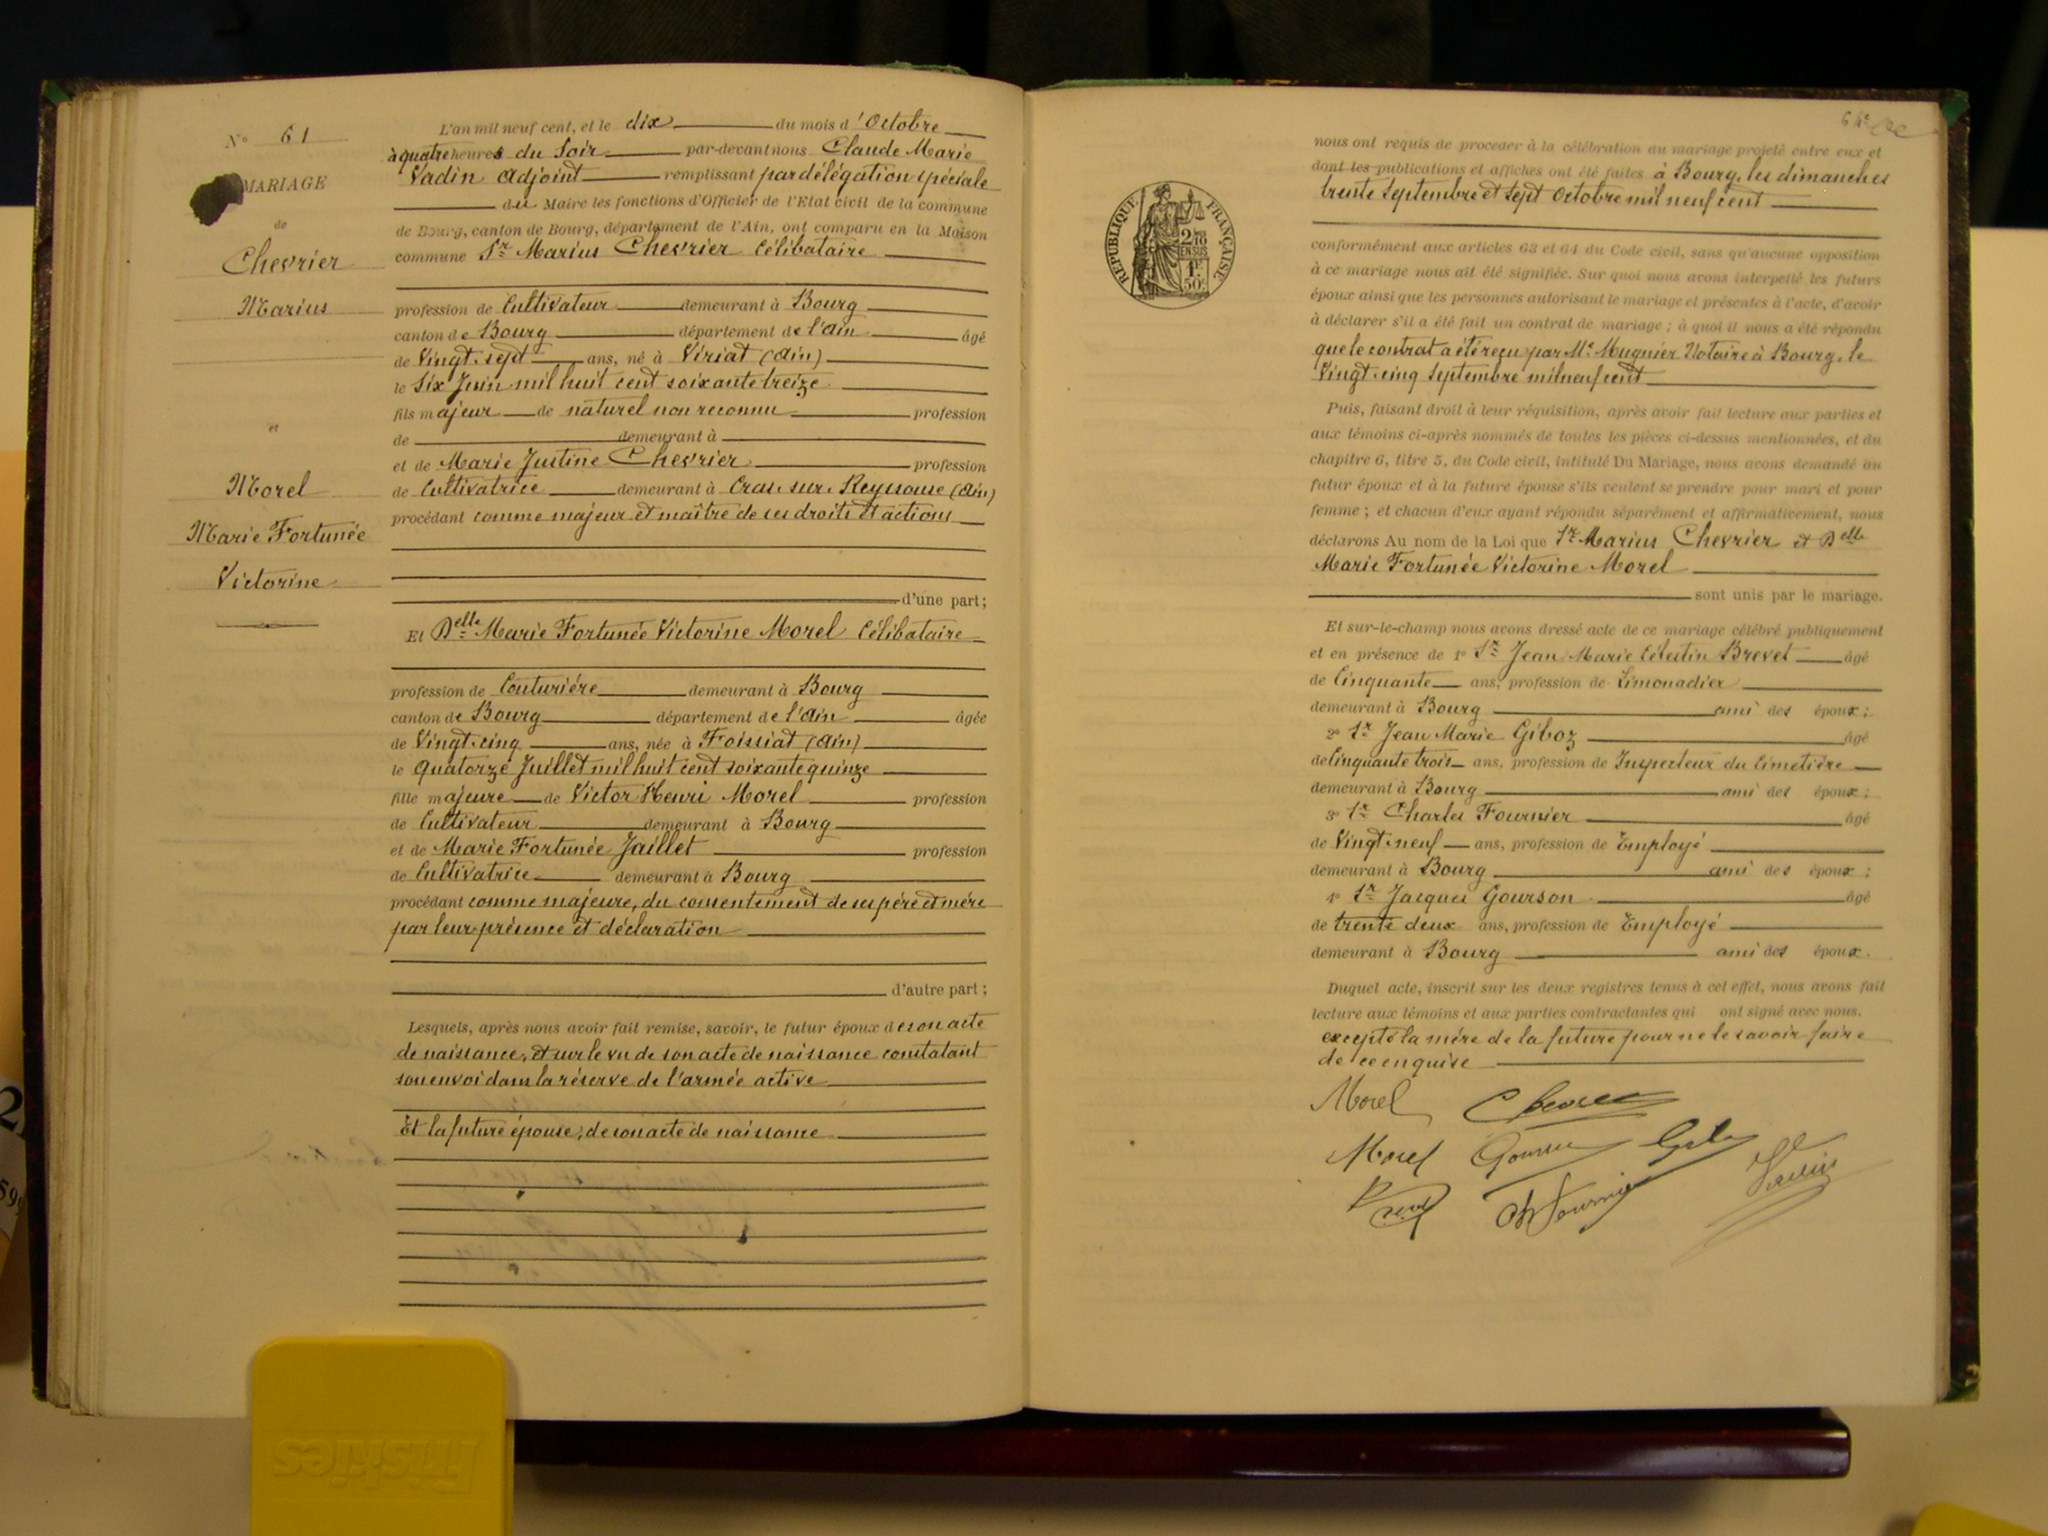 N° 61
MARIAGE
de
Chevrier
Marius
et
Morel
Marie Fortunée
Victorine
L'an mil neuf cent, et le dix du mois d'Octobre
à quatre heures du Soir par-devant nous Claude Marie
Vadin Adjoint remplissant par délégation spéciale
du Maire les fonctions d'Officier de l'Etat civil de la commune
de Bourg, canton de Bourg, département de l'Ain, ont comparu en la Maison
commune Sr Marius Chevrier Célibataire
profession de Cultivateur demeurant à Bourg
canton de Bourg département de l'Ain âgé
de Vingt-sept ans, né à Viriat (Ain)
le Six Juin mil huit cent soixante treize
fils majeur de naturel non reconnu profession
de demeurant à
et de Marie Justine Chevrier profession
de Cultivatrice demeurant à Cras-sur-Reyssouse (Ain)
procédant comme majeur et maître de ses droits et actions
d'une part;
Et Delle Marie Fortunée Victorine Morel Célibataire
profession de Couturière demeurant à Bourg
canton de Bourg département de l'Ain âgée
de Vingt-cinq ans, née à Foissiat (Ain)
le quatorze Juillet mil huit cent soixante quinze
fille majeure de Victor Henri Morel profession
de Cultivateur demeurant à Bourg
et de Marie Fortunée Jaillet profession
de Cultivatrice demeurant à Bourg
procédant comme majeure, du consentement de ses père et mère
par leur présence et déclaration
d'autre part;
Lesquels, après nous avoir fait remise, savoir, le futur époux de son acte
de naissance, et sur le vu de son acte de naissance constatant
son envoi dans la réserve de l'armée active
Et la future épouse, de son acte de naissance
RÉPUBLIQUE FRANÇAISE
1F
50c
nous ont requis de procéder à la célébration du mariage projeté entre eux et
dont les publications et affiches ont été faites à Bourg, les dimanches
trente Septembre et Sept Octobre mil neuf cent
conformément aux articles 63 et 64 du Code civil, sans qu'aucune opposition
à ce mariage nous ait été signifiée. Sur quoi nous avons interpellé les futurs
époux ainsi que les personnes autorisant le mariage et présentes à l'acte, d'avoir
à déclarer s'il a été fait un contrat de mariage; à quoi il nous a été répondu
que le contrat a été reçu par Me Mugnier Notaire à Bourg, le
Vingt-cinq Septembre mil neuf cent
Puis, faisant droit à leur réquisition, après avoir fait lecture aux parties et
aux témoins ci-après nommés de toutes les pièces ci-dessus mentionnées, et du
chapitre 6, titre 5, du Code civil, intitulé Du Mariage, nous avons demandé au
futur époux et à la future épouse s'ils veulent se prendre pour mari et pour
femme; et chacun d'eux ayant répondu séparément et affirmativement, nous
déclarons Au nom de la Loi que Sr Marius Chevrier et Delle
Marie Fortunée Victorine Morel
sont unis par le mariage.
Et sur-le-champ nous avons dressé acte de ce mariage célébré publiquement
et en présence de 1° Sr Jean Marie Célestin Brevet âgé
de Cinquante ans, profession de Limonadier
demeurant à Bourg ami des époux;
2° Sr Jean Marie Giboz âgé
de Cinquante trois ans, profession de Inspecteur du Cimetière
demeurant à Bourg ami des époux;
3° Sr Charles Fournier âgé
de Vingt-neuf ans, profession de Employé
demeurant à Bourg ami des époux;
4° Sr Jacques Gourson âgé
de trente deux ans, profession de Employé
demeurant à Bourg ami des époux.
Duquel acte, inscrit sur les deux registres tenus à cet effet, nous avons fait
lecture aux témoins et aux parties contractantes qui ont signé avec nous.
excepté la mère de la future pour ne le savoir faire
de ce enquise
Morel Chevrier
Morel
Ch Fournier Vadin